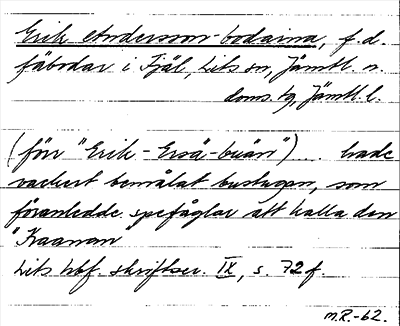 Erik Andersson-bodarna, f.d.
fäbodar i Fjäl, Lits sn, Jämtl. n.
doms. tg, Jämtl. l.
(för "Erik-Ersä-buán") .. hade
vackert bemålat bustugan, som
föranledde spefåglar att kalla den
"Kraaman
Lits hbf. skriftser. IX, s. 72 f.
M.R.-62.